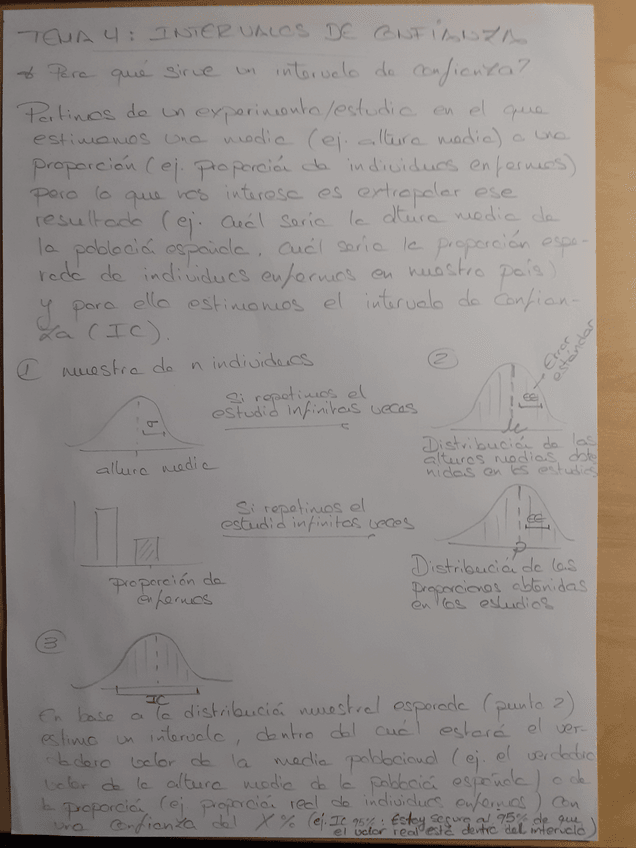 TEMA 4: INTERVALOS DE CONFIANZA
* Para qué sirve un intervalo de confianza?
Partimos de un experimento/estudio en el que
estimamos una media (ej. altura media) o una
proporción (ej. proporción de individuos enfermos)
pero lo que nos interesa es extrapolar ese
resultado (ej. cuál sería la altura media de
la población española, cuál sería la proporción espe-
rada de individuos enfermos en nuestro país)
y para ello estimamos el intervalo de confian-
za (IC).
① muestra de n individuos
σ
altura media
Si repetimos el
estudio infinitas veces
②
Error
estándar
EE
μ
Distribución de las
alturas medias obte-
nidas en los estudios
proporción de
enfermos
Si repetimos el
estudio infinitas veces
EE
p
Distribución de las
proporciones obtenidas
en los estudios
③
IC
En base a la distribución muestral esperada (punto 2)
estimo un intervalo, dentro del cuál estará el ver-
dadero valor de la media poblacional (ej. el verdadero
valor de la altura media de la población española) o de
la proporción (ej proporción real de individuos enfermos) con
una confianza del X% (ej. IC 95%: Estoy seguro al 95% de que
el valor real está dentro del intervalo)